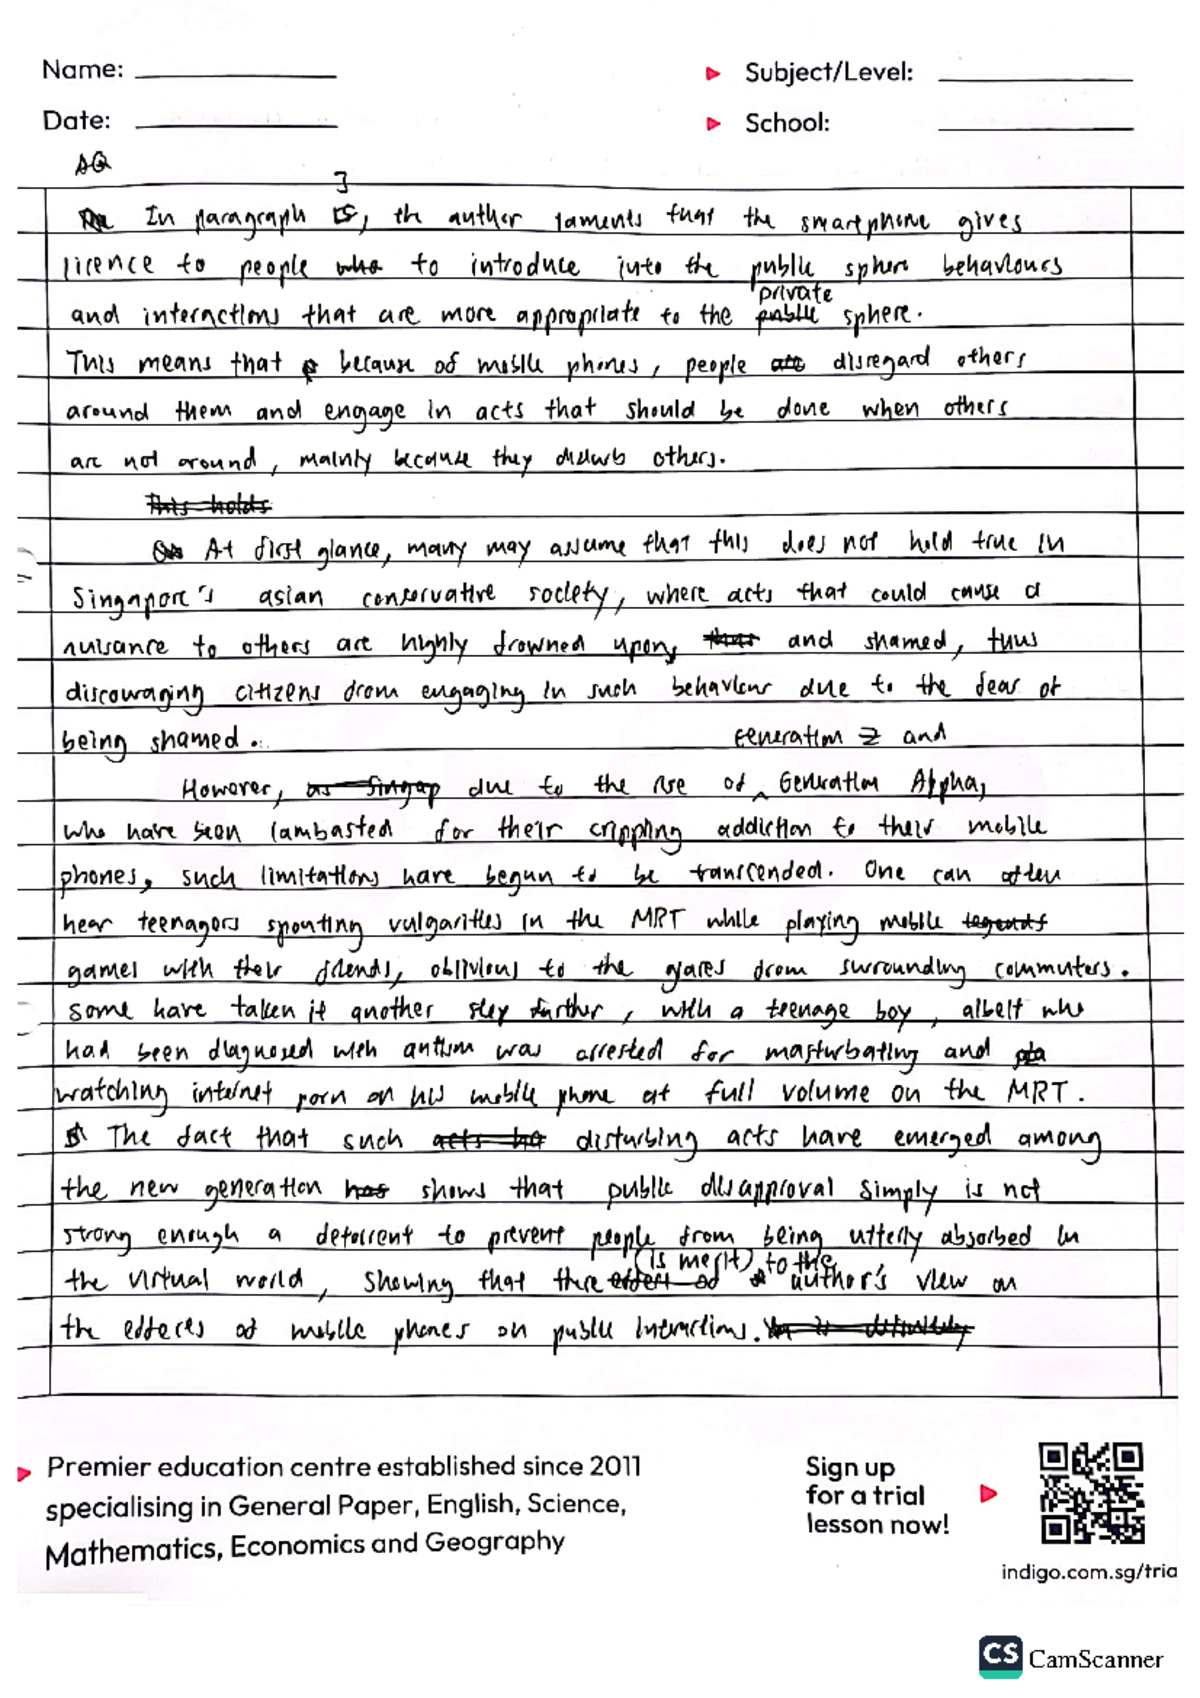 Name:
Subject/Level:
Date:
School:
AQ
3
In paragraph, the author laments that the smartphone gives
licence to people to introduce into the public sphere behaviours
private
and interactions that are more appropriate to the sphere.
This means that because of mobile phones, people disregard others
around them and engage in acts that should be done when others
are not around, mainly because they disturb others.
This holds
At first glance, many may assume that this does not hold true in
Singapore's asian conservative society, where acts that could cause a
nuisance to others are highly frowned upon, and shamed, thus
discouraging citizens from engaging in such behaviour due to the fear of
being shamed.
Generation Z and
However, due to the rise of Generation Alpha,
who have been lambasted for their crippling addiction to their mobile
phones, such limitations have begun to be transcended. One can often
hear teenagers spouting vulgarities in the MRT while playing mobile legends
games with their friends, oblivious to the glares from surrounding commuters.
some have taken it another step further, with a teenage boy, albeit who
had been diagnosed with autism was arrested for masturbating and
watching internet porn on his mobile phone at full volume on the MRT.
The fact that such disturbing acts have emerged among
the new generation has shows that public disapproval simply is not
strong enough a deterrent to prevent people from being utterly absorbed in
(is merit) to the
the virtual world, showing that there author's view on
the effects of mobile phones on public interactions.
Premier education centre established since 2011
specialising in General Paper, English, Science,
Mathematics, Economics and Geography
Sign up
for a trial
lesson now!
indigo.com.sg/tria
CS CamScanner